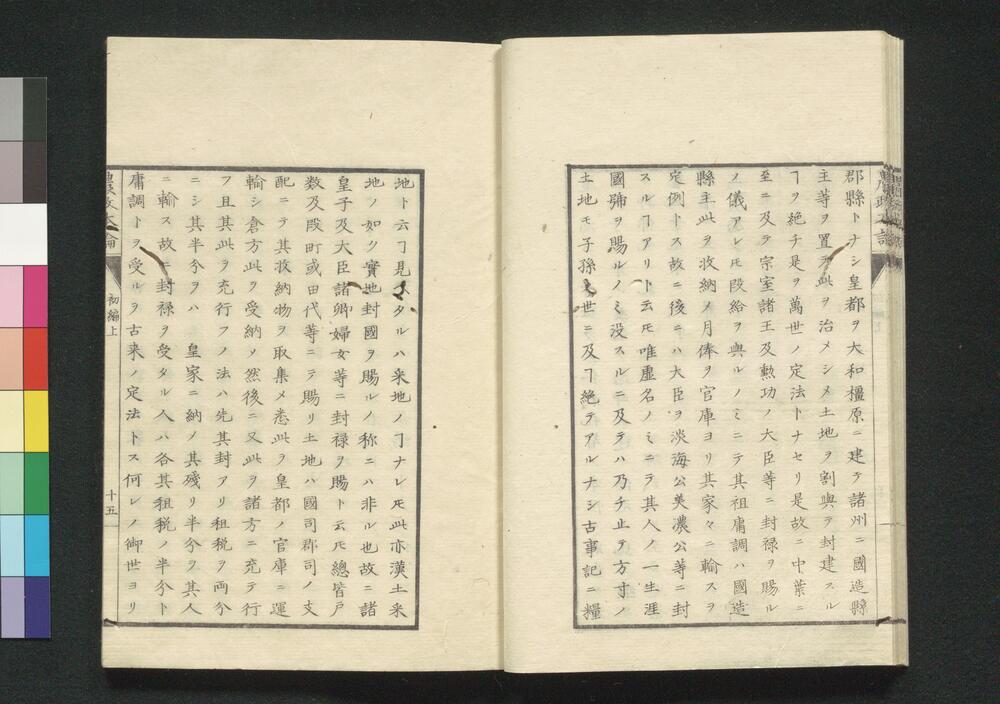 郡縣トナシ皇都ヲ大和橿原ニ建テ諸州ニ國造縣
主等ヲ置テ此ヲ治メシメ土地ヲ割與テ封建スル
ヿヲ絶チ是ヲ萬世ノ定法トナセリ是故ニ中葉ニ
至ニ及テ宗室諸王及勲功ノ大臣等ニ封禄ヲ賜ル
ノ儀アレ𪜈段給ヲ與ルノミニテ其祖庸調ハ國造
縣主此ヲ收納メ月俸ヲ官庫ヨリ其家々ニ輸スヲ
定例トス故ニ後ニハ大臣ヲ淡海公美濃公等ニ封
スルヿアリト云𪜈唯虚名ノミニテ其人ノ一生涯
國號ヲ賜ルノミ没スルニ及テハ乃チ止テ方寸ノ
土地モ子孫永世ニ及ヿ絶テアルナシ古事記ニ糧
地ト云ヿ見ヘタルハ采地ノヿナレ𪜈此亦漢土采
地ノ如ク實地封國ヲ賜ルノ称ニハ非ル也故ニ諸
皇子及大臣諸卿婦女等ニ封禄ヲ賜ト云𪜈總皆戸
数及段町或田代等ニテ賜リ土地ハ國司郡司ノ支
配ニテ其收納物ヲ取集メ悉此ヲ皇都ノ官庫ニ運
輸シ倉方此ヲ受納メ然後ニ又此ヲ諸方ニ充テ行
フ且其此ヲ充行フノ法ハ先其封アリ租税ヲ両分
ニシ其半分ヲハ　皇家ニ納メ其殘リ半分ヲ其人
ニ輸ス故ニ封禄ヲ受タル人ハ各其租税ノ半分ト
庸調トヲ受ルヲ古来ノ定法トス何レノ御世ヨリ
初編上
十五